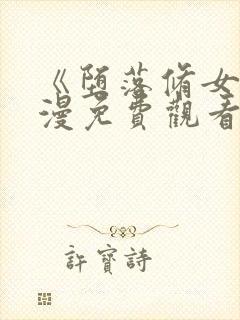 《堕落脩女
漫免費觀看
許寶詩